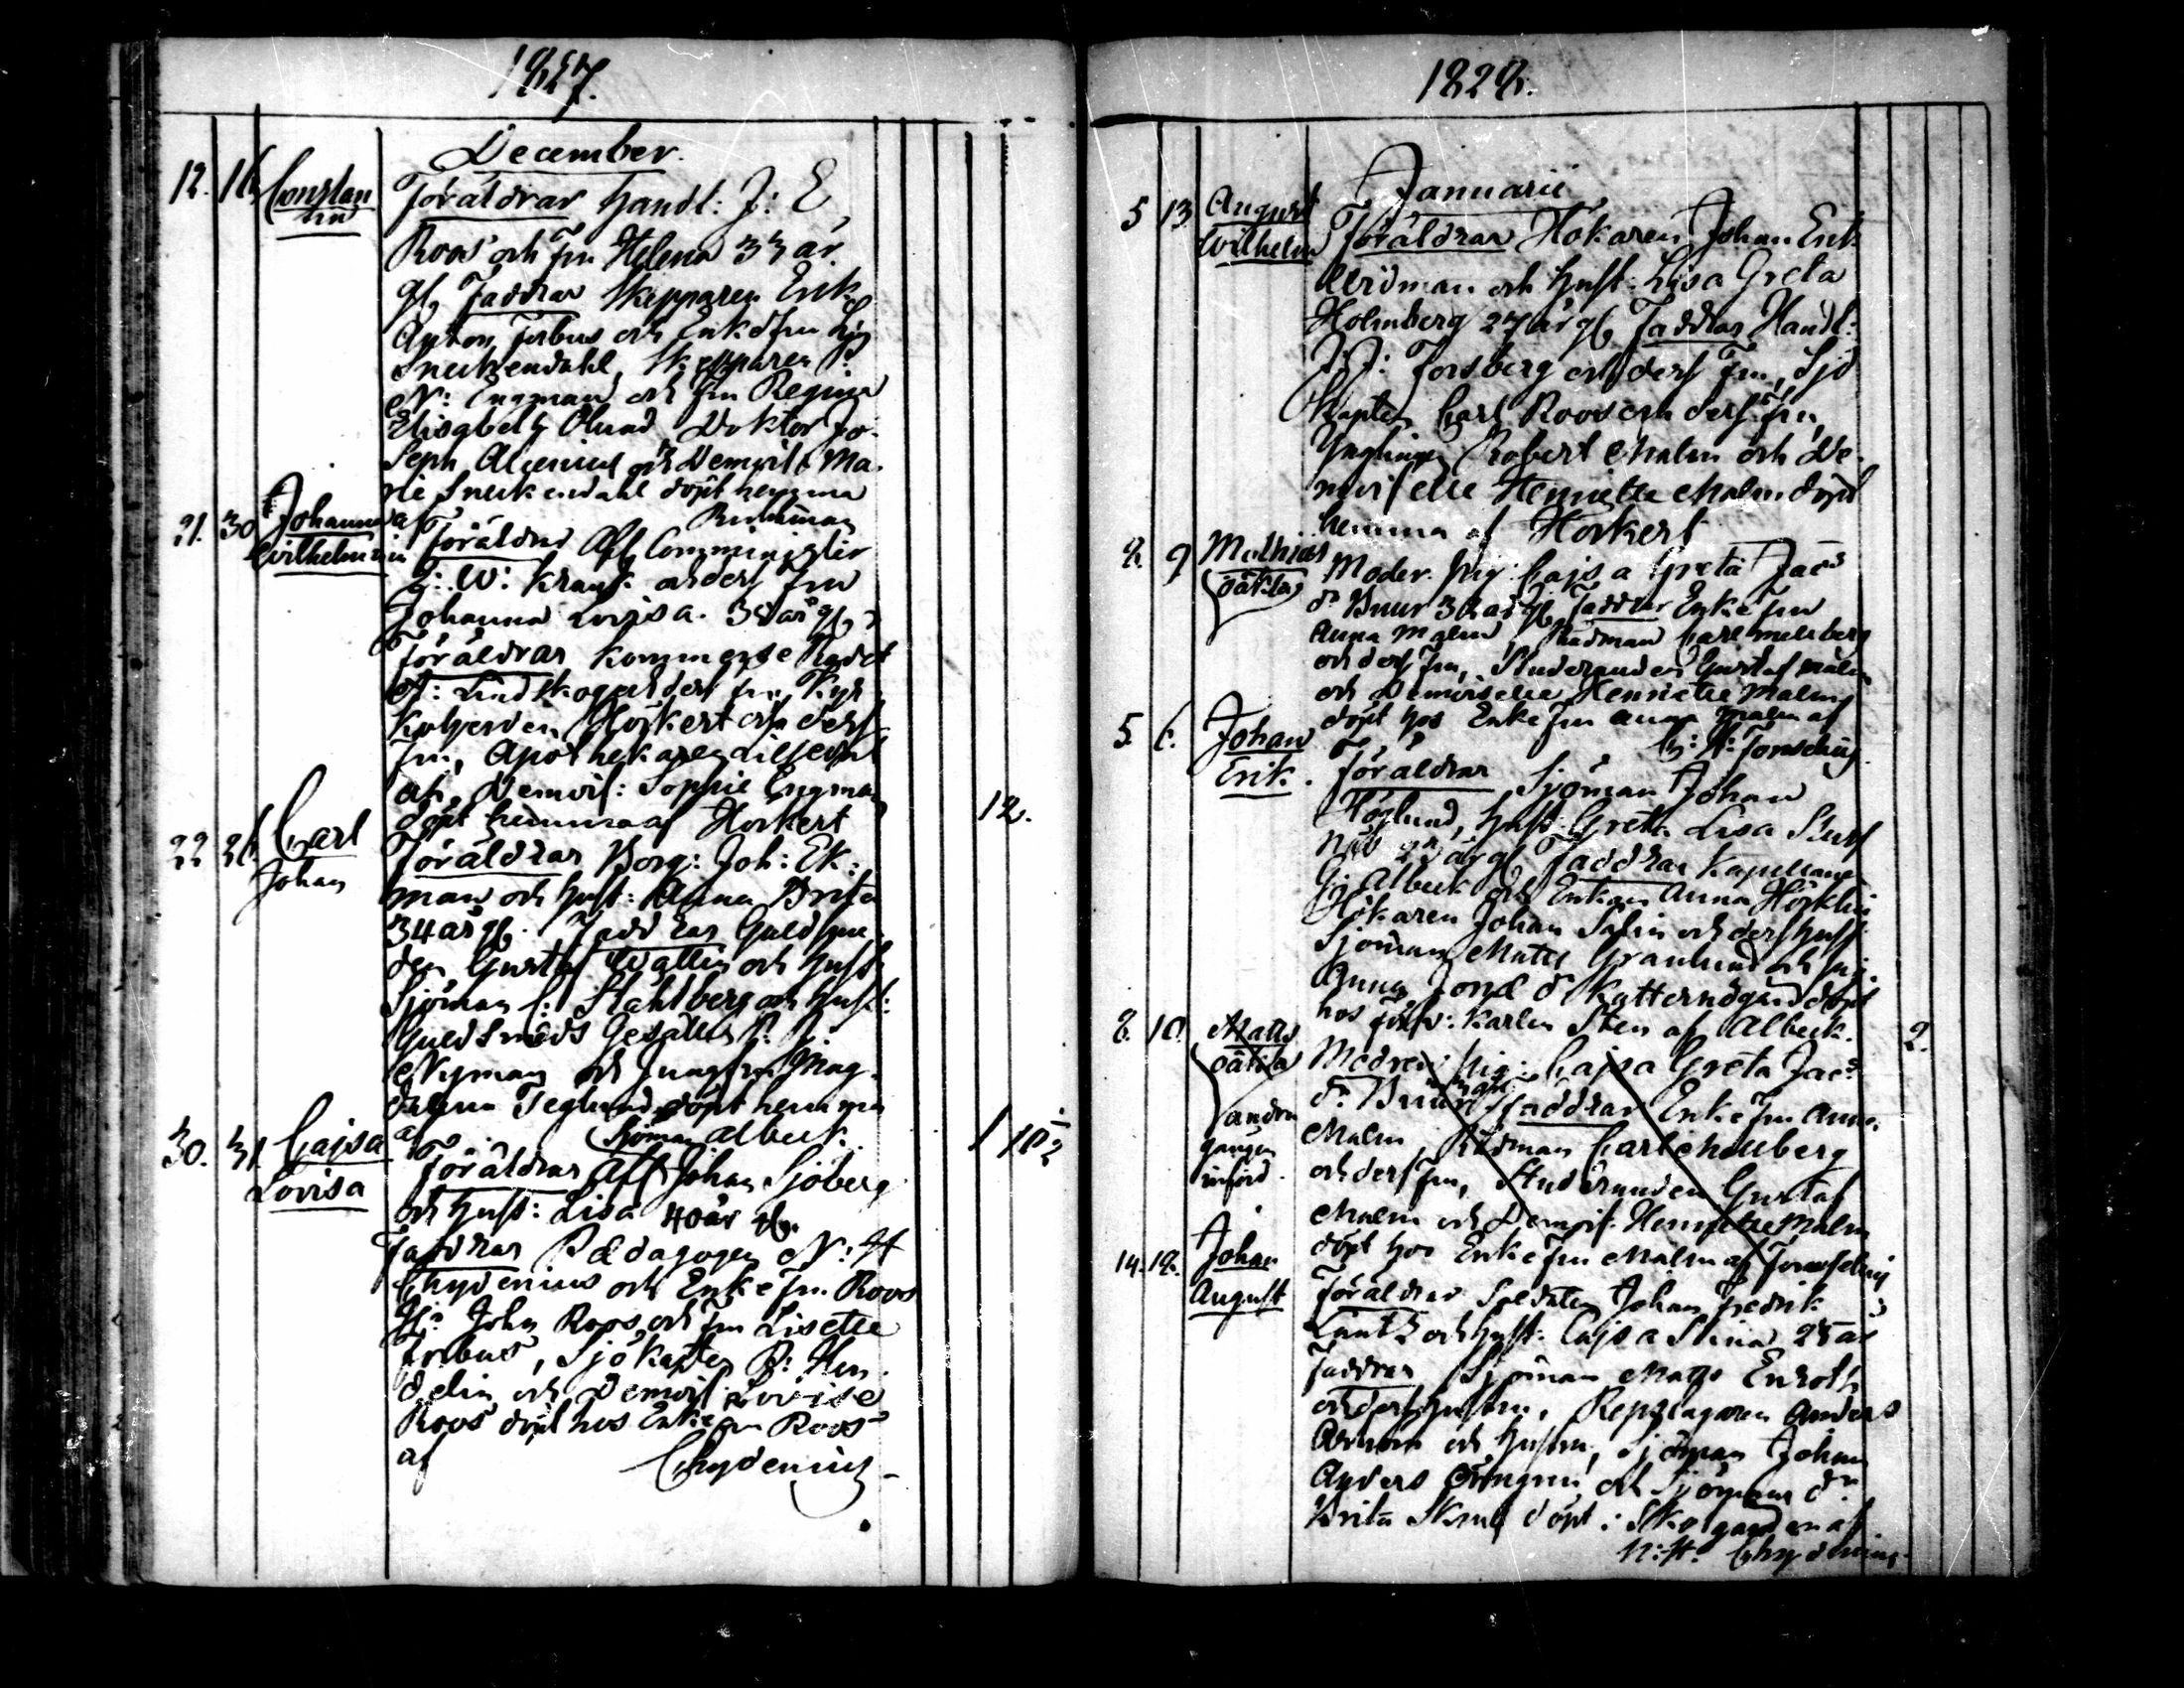 1827.
December.
12. 16 Constan
tin
Föräldrar Handl: J: E
Roos och fru Helena 33 år
gl, Faddrar Skepparen Erik
Anton Forbus och Enkefru
Sneckendahl, Skepparen
N: Engman och fru Regina
Elisabeth Ölund Doktor Jo-
seph Alcenius och Demois: Ma-
rie Sneckendahl döpt hemma
af
21. 30 Johanna
Wilhelmina
Föräldrar Commissister
J: W: och ders fru
Johanna Lovisa. 3 år gl,
Föräldrar Kommerse Rådet
Lindskog och ders fru, Kyr
koherden Hörkert och ders
fru, Apothekaren Liljeqvist
och Demois: Sophie Engman
döpt hemma af Horkert
12.
22 26 Carl
Johan
Föräldrar Borg: Joh: Ek-
man och hust: Anna Brita
34 år gl. Faddrar Guldsme-
den Gustaf Wallin och hust
Sjöman C: Stahlberg och hust:
Guldsmeds Gesällen
Nyman och Jungfru Mag-
dalena Teglund döpt hemma
af Albeck.
30. 31 Cajsa
Lovisa
Föräldrar Sjöman Johan Sjöberg
och hust: Lisa 40 år gl.
1 10
Faddrar Pædagogen N: H
Chydenius och Enkefru Roos
H: John Roos och fru Lisette
Forbus, Sjökapten
och Demois: Lovise
Roos döpt hos Enkefru Roos
af Chydenius
1828.
Januarii
5 13 August
Wilhelm
Föräldrar Hökaren Johan Erik
Widman och hust: Lisa Greta
Holmberg 27 år gl, Faddrar Handl:
J: J: Forsberg och ders Fru, Sjö
Kapten Carl Roos och ders fru,
Ynglingen Robert Malm och De-
moiselle Henriette Malm döpt
hemma af Horkert
8. 9 Mathias
oäkta
Moder: Pig: Cajsa Greta Jacs
dr Buur 32 år gl, Faddrar Enkefru
Anna Malm, Rådman Carl Mellberg
och ders fru, Studeranden Gustaf Malm
och Demoiselle Henriette Malm
döpt hos Enkefru Anna Malm af
5. 6. Johan
Erik.
Föräldrar Sjöman Johan
Höglund, hust: Greta Lisa
år gl Faddrar Kapellanen
G: Albeck och Enkan Anna
Hökaren Johan och ders hust
Sjöman Matts Granlund och pig.
Anna Jonæ dr Katternögård döpt
hos Karlen Sten af Albeck.
8. 10. Matts
oäkta
andra
gången
införd.
2.
Moder: Pig: Cajsa Greta Jacs
dr Buur Faddrar Enkefru Anna
Malm, Rådman Carl Mellberg
och ders fru, Studeranden Gustaf
Malm och Demois: Henriette Malm
döpt hos Enkefru Malm af
14. 18. Johan
August
Föräldrar Soldaten Johan Fredrik
och hust: Cajsa Stina 25 år
Faddrar Sjöman Matts Enroth
och ders hustru, Repslagaren Anders
och hustru, Sjöman Johan
Anders och Sjömans dr
Brita döpt i af
N: H: Chydenius.